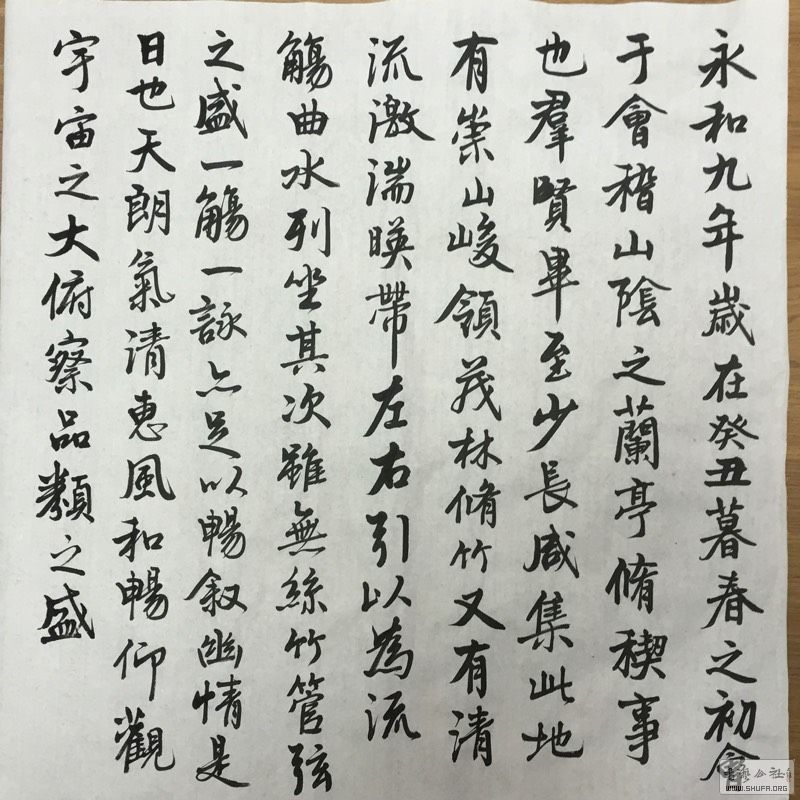 永和九年歲在癸丑暮春之初會
于會稽山陰之蘭亭脩稧事
也羣賢畢至少長咸集此地
有崇山峻領茂林脩竹又有清
流激湍暎帶左右引以為流
觴曲水列坐其次雖無絲竹管弦
之盛一觴一詠亦足以暢敘幽情是
日也天朗氣清惠風和暢仰觀
宇宙之大俯察品類之盛
WWW.SHUFA.ORG